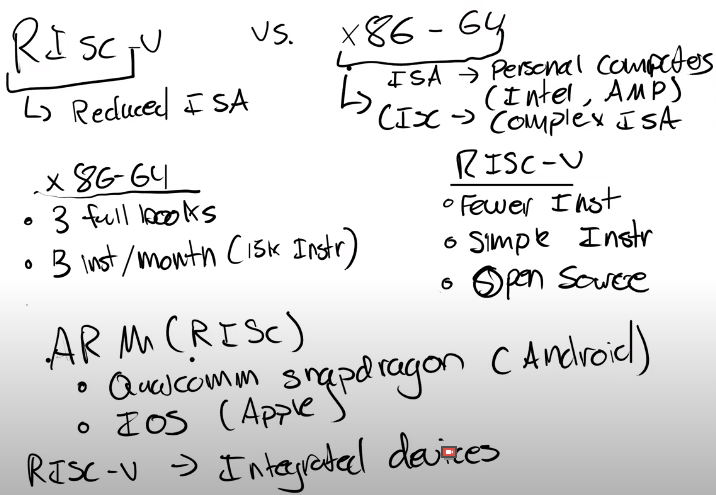 RISC-V vs. x86-64
↳ Reduced ISA
ISA → Personal Computers
(Intel, AMP)
↳ CISC → Complex ISA
x86-64
• 3 full books
• 3 inst/month (15k Instr)
RISC-V
◦ Fewer Inst
◦ Simple Instr
◦ Open Source
ARM (RISC)
◦ Qualcomm snapdragon (Android)
◦ IOS (Apple)
RISC-V → Integrated devices